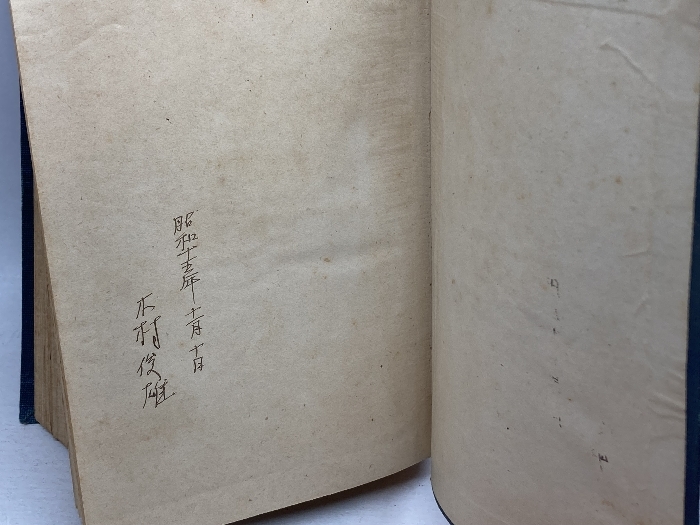 昭和十五年十一月十日
木村俊雄